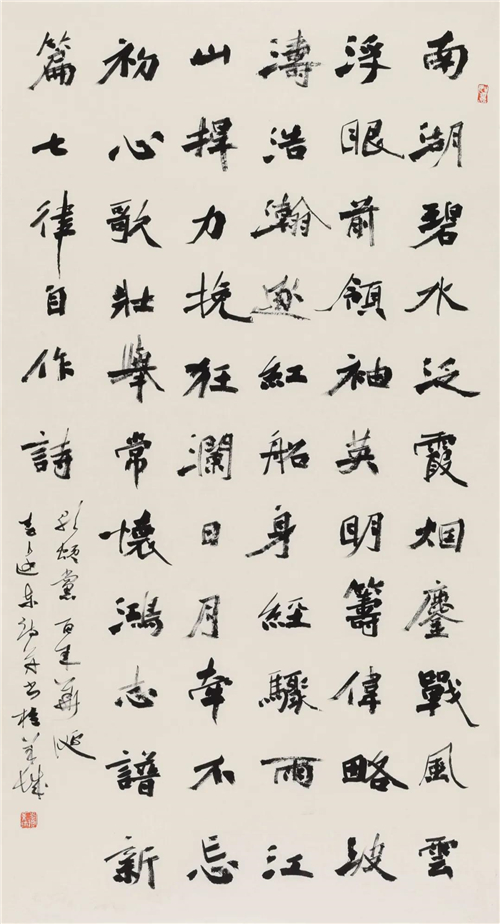 南湖碧水泛霞烟鏖戰風雲
浮眼前領袖英明籌偉略波
濤浩瀚逐紅船身經驟雨江
山捍力挽狂瀾日月牽不忘
初心歌壯舉常懷鴻志譜新
篇七律自作詩
頌黨百年華誕
東詩并书於羊城